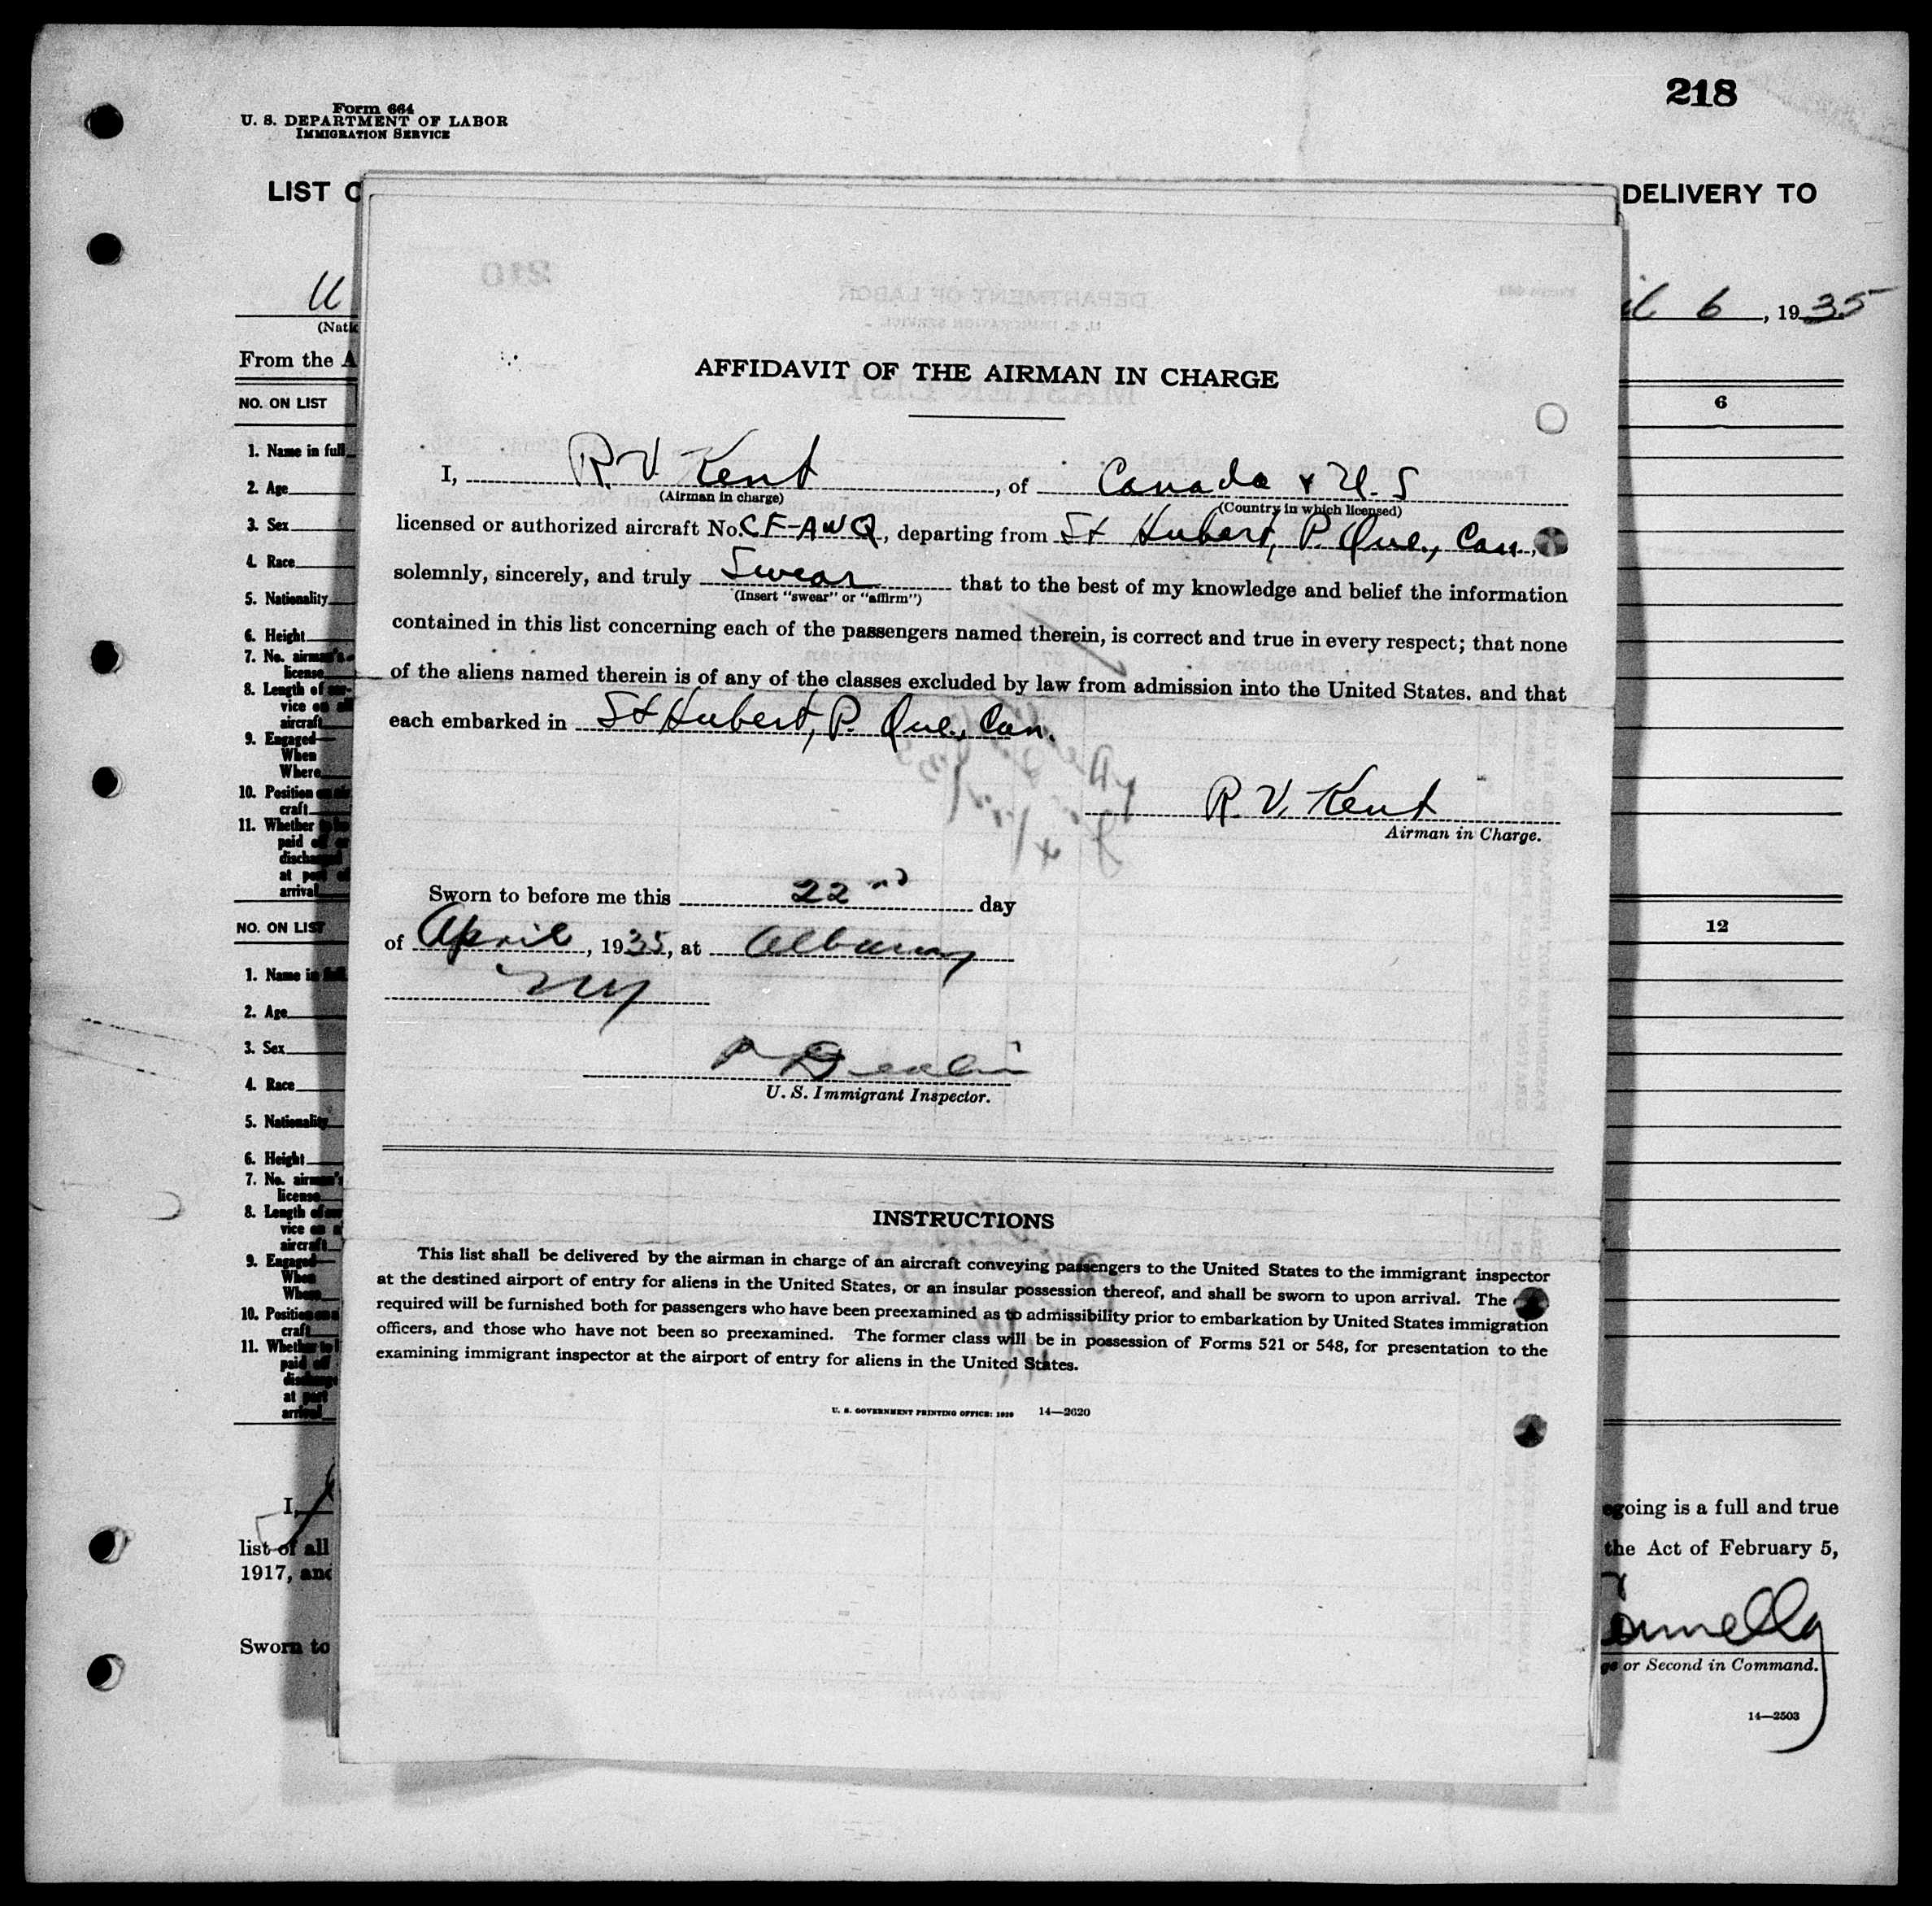 Form 664
U. S. DEPARTMENT OF LABOR
IMMIGRATION SERVICE
218
LIST
DELIVERY TO
6, 1935
From the A
NO. ON LIST
6
1. Name in full
2. Age
3. Sex
4. Race
5. Nationality
6. Height
7. No. airman's
license
8. Length of ser-
vice on
aircraft
9. Engaged
When
Where
10. Position on air
craft
11. Whether
paid off
at port of
arrival
NO. ON LIST
12
1. Name in full
2. Age
3. Sex
4. Race
5. Nationality
6. Height
7. No. airman's
license
8. Length of ser
vice on a
aircraft
9. Engaged
When
Where
10. Position on
craft
11. Whether to
paid off
at port
arrival
I,
going is a full and true
list of all
the Act of February 5,
1917, and
Sworn to
or Second in Command.
14—2503
AFFIDAVIT OF THE AIRMAN IN CHARGE
I, R. V. Kent, of Canada & U. S
(Airman in charge) (Country in which licensed)
licensed or authorized aircraft No. CF-AWQ, departing from St Hubert, P. Que., Can.,
solemnly, sincerely, and truly Swear that to the best of my knowledge and belief the information
(Insert "swear" or "affirm")
contained in this list concerning each of the passengers named therein, is correct and true in every respect; that none
of the aliens named therein is of any of the classes excluded by law from admission into the United States. and that
each embarked in St Hubert, P. Que., Can.
R. V. Kent
Airman in Charge.
Sworn to before me this 22nd day
of April, 1935, at Albany
NY
U. S. Immigrant Inspector.
INSTRUCTIONS
This list shall be delivered by the airman in charge of an aircraft conveying passengers to the United States to the immigrant inspector
at the destined airport of entry for aliens in the United States, or an insular possession thereof, and shall be sworn to upon arrival. The
required will be furnished both for passengers who have been preexamined as to admissibility prior to embarkation by United States immigration
officers, and those who have not been so preexamined. The former class will be in possession of Forms 521 or 548, for presentation to the
examining immigrant inspector at the airport of entry for aliens in the United States.
U. S. GOVERNMENT PRINTING OFFICE: 1929 14—2620